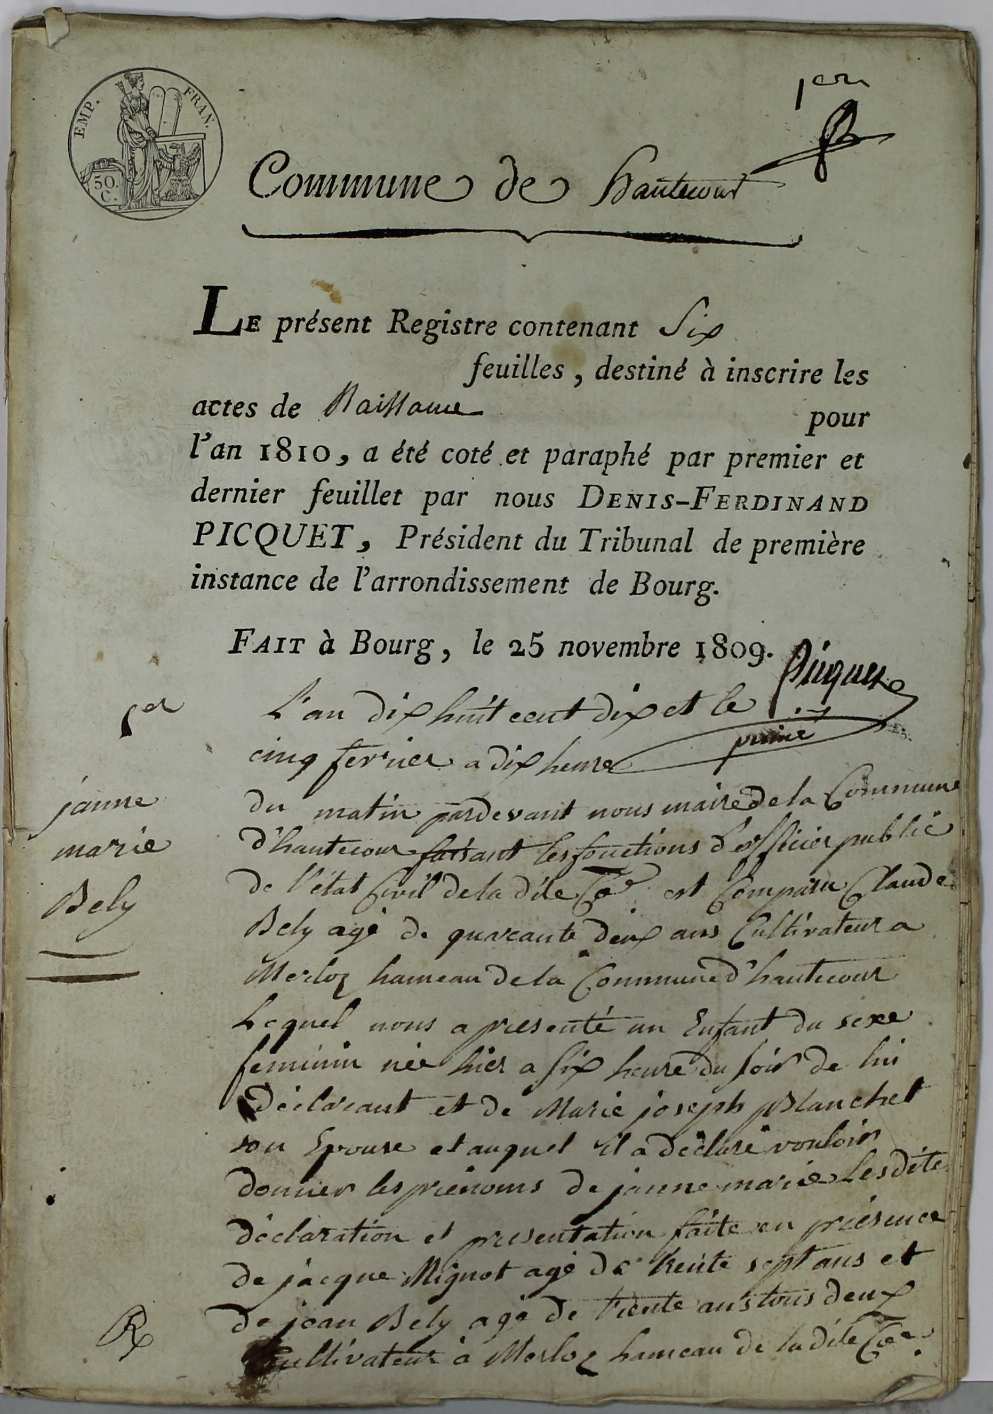 EMP. FRAN.
50. C.
1er
Commune de hautecour
LE présent Registre contenant Six
feuilles, destiné à inscrire les
actes de Naissance pour
l'an 1810, a été coté et paraphé par premier et
dernier feuillet par nous DENIS-FERDINAND
PICQUET, Président du Tribunal de première
instance de l'arrondissement de Bourg.
FAIT à Bourg, le 25 novembre 1809.
Picquet
1er
janne
marie
Bely
L'an dix huit cent dix et le
cinq fevrier a dix heure
du matin pardevant nous maire de la Commune
d'hautecour faisant les fonctions d'officier public
de l'état Civil de la dite Coe est Comparu Claude
Bely agé de quarante deux ans Cultivateur a
Merloz hameau de la Commune d'hautecour
Lequel nous a presenté un Enfant du sexe
feminin née hier a six heure du soir de lui
déclarant et de Marie joseph Blanchet
son Epouse et auquel il a déclaré vouloir
donner les prénoms de janne marie Les dite
déclaration et presentation faite en présence
de jacque Mignot agé de trente sept ans et
de jean Bely agé de trente ans tous deux
Cultivateur à Merloz hameau de la dite Coe.